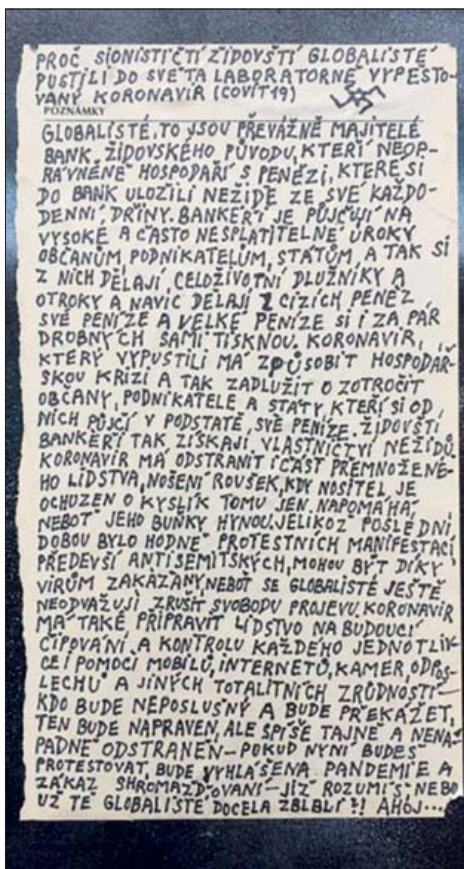 PROČ SIONISTIČTÍ ŽIDOVŠTÍ GLOBALISTÉ
PUSTILI DO SVĚTA LABORATORNĚ VYPĚSTO-
VANÝ KORONAVIR (COVIT19)
POZNÁMKY
GLOBALISTÉ, TO JSOU PŘEVÁŽNĚ MAJITELÉ
BANK, ŽIDOVSKÉHO PŮVODU, KTEŘÍ NEOP-
RÁVNĚNĚ HOSPODAŘÍ S PENĚZI, KTERÉ SI
DO BANK ULOŽILI NEŽIDÉ ZE SVÉ KAŽDO-
DENNÍ DŘINY. BANKÉŘI JE PŮJČUJÍ NA
VYSOKÉ A ČASTO NESPLATITELNÉ ÚROKY
OBČANŮM, PODNIKATELŮM, STÁTŮM, A TAK SI
Z NICH DĚLAJÍ, CELOŽIVOTNÍ DLUŽNÍKY A
OTROKY A NAVÍC DĚLAJÍ Z CIZÍCH PENĚZ
SVÉ PENÍZE A VELKÉ PENÍZE SI I ZA PÁR
DROBNÝCH SAMI TISKNOU. KORONAVIR,
KTERÝ VYPUSTILI MÁ ZPŮSOBIT HOSPODÁŘ-
SKOU KRIZI A TAK ZADLUŽIT O ZOTROČIT
OBČANY, PODNIKATELE A STÁTY, KTEŘÍ SI OD
NICH PŮJČÍ V PODSTATĚ, SVÉ PENÍZE. ŽIDOVŠTÍ
BANKÉŘI TAK ZÍSKAJÍ VLASTNICTVÍ NEŽIDŮ.
KORONAVIR MÁ ODSTRANIT I ČÁST PŘEMNOŽENÉ-
HO LIDSTVA, NOŠENÍ ROUŠEK, KDY NOSITEL JE
OCHUZEN O KYSLÍK TOMU JEN NAPOMÁHÁ,
NEBOŤ JEHO BUŇKY HYNOU. JELIKOŽ POSLEDNÍ
DOBOU BYLO HODNĚ PROTESTNÍCH MANIFESTACÍ
PŘEDEVŠÍ ANTISEMITSKÝCH, MOHOU BÝT DÍKY
VIRŮM ZAKÁZÁNY, NEBOŤ SE GLOBALISTÉ JEŠTĚ
NEODVAŽUJÍ ZRUŠIT SVOBODU PROJEVU. KORONAVIR
MÁ TAKÉ PŘIPRAVIT LIDSTVO NA BUDOUCÍ
ČIPOVÁNÍ A KONTROLU KAŽDÉHO JEDNOTLIV-
CE I POMOCÍ MOBILŮ, INTERNETŮ, KAMER, ODPOS-
LECHŮ A JINÝCH TOTALITNÍCH ZRŮDNOSTÍ -
KDO BUDE NEPOSLUŠNÝ A BUDE PŘEKÁŽET,
TEN BUDE NAPRAVEN, ALE SPÍŠE TAJNĚ A NENÁ-
PADNĚ ODSTRANĚN - POKUD NYNÍ BUDEŠ
PROTESTOVAT, BUDE VYHLÁŠENA PANDEMIE A
ZÁKAZ SHROMAŽĎOVÁNÍ - JIŽ ROZUMÍŠ, NEBO
UŽ TĚ GLOBALISTÉ DOCELA ZBLBLI?! AHOJ...